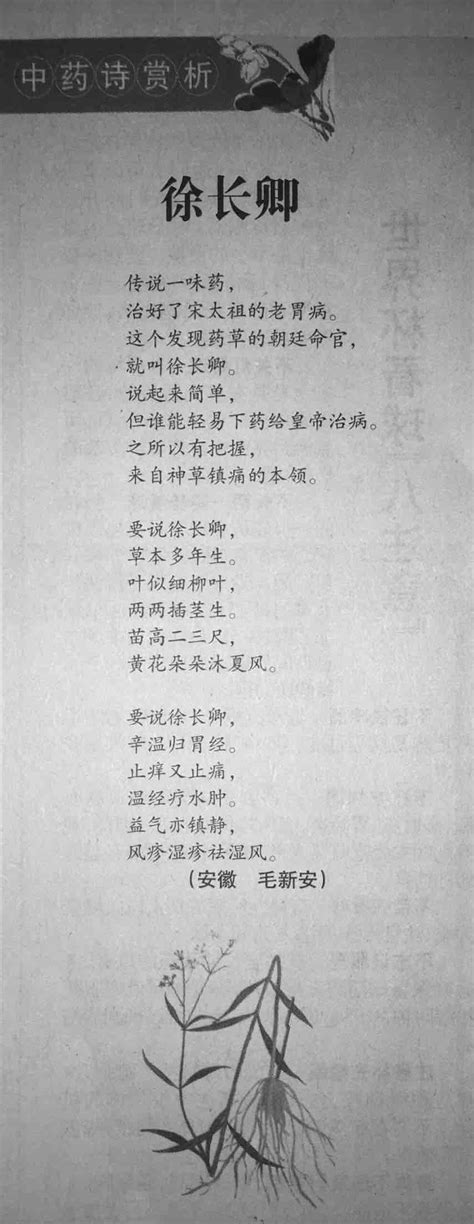 中药诗赏析
徐长卿
传说一味药，
治好了宋太祖的老胃病。
这个发现药草的朝廷命官，
就叫徐长卿。
说起来简单，
但谁能轻易下药给皇帝治病。
之所以有把握，
来自神草镇痛的本领。
要说徐长卿，
草本多年生。
叶似细柳叶，
两两插茎生。
苗高二三尺，
黄花朵朵沐夏风。
要说徐长卿，
辛温归胃经。
止痒又止痛，
温经疗水肿。
益气亦镇静，
风疹湿疹祛湿风。
（安徽　毛新安）